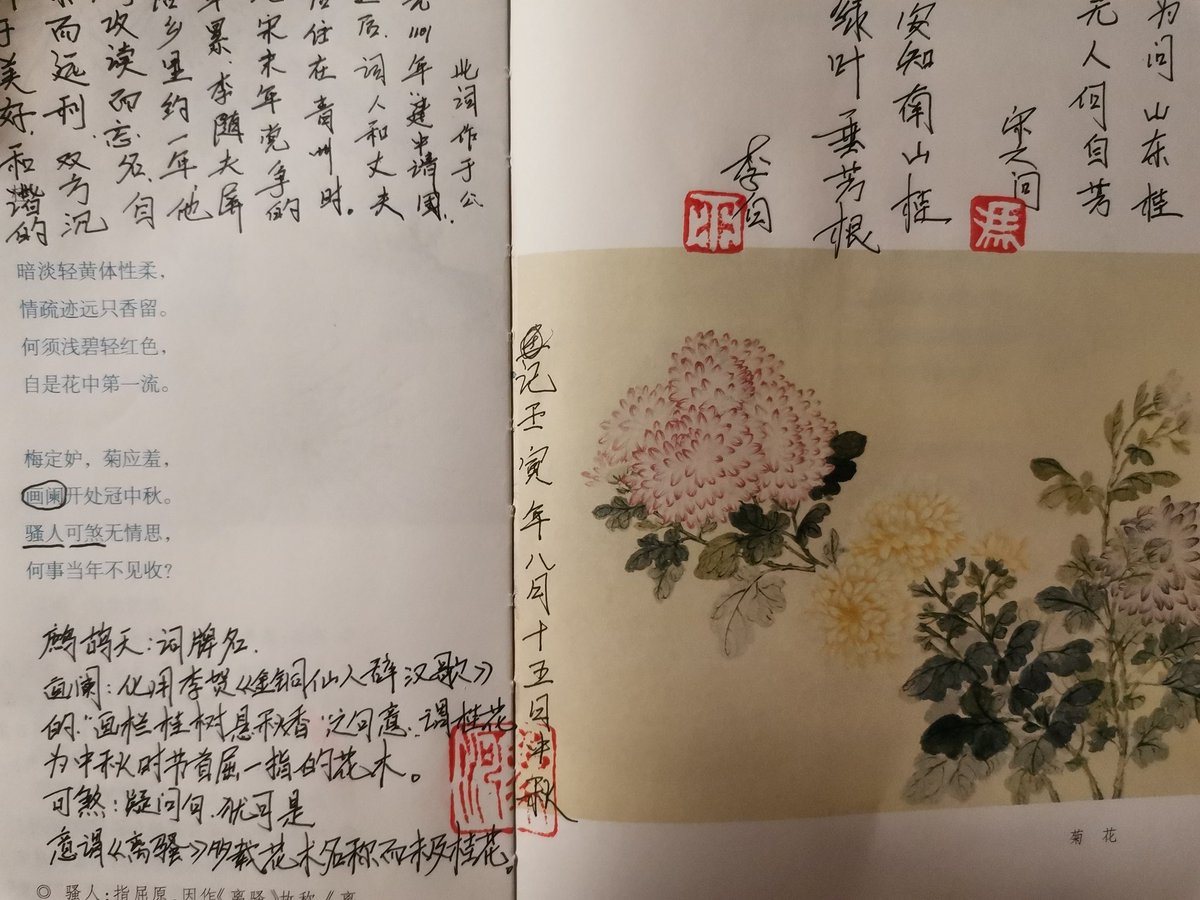 此词作于公
元1101年.建中靖国.
之后.词人和丈夫
居住在青州时。
宋末年党争的
累.李随夫屏
乡里约一年他
攻读而忘名.自
而远利.双方沉
于美好.和谐的
暗淡轻黄体性柔，
情疏迹远只香留。
何须浅碧轻红色，
自是花中第一流。
梅定妒，菊应羞，
画阑开处冠中秋。
骚人可煞无情思，
何事当年不见收？
鹧鸪天：词牌名.
画阑：化用李贺《金铜仙人辞汉歌》
的"画栏桂树悬秋香"之句意.谓桂花
为中秋时节首屈一指的花木。
可煞：疑问句.犹可是
意谓《离骚》多载花木名称而未及桂花。
◎ 骚人：指屈原，因作《离骚》故称。《离
为问山东桂
无人何自芳
宋之问
安知南山桂
绿叶垂芳根
李白
记壬寅年八月十五日中秋
菊花